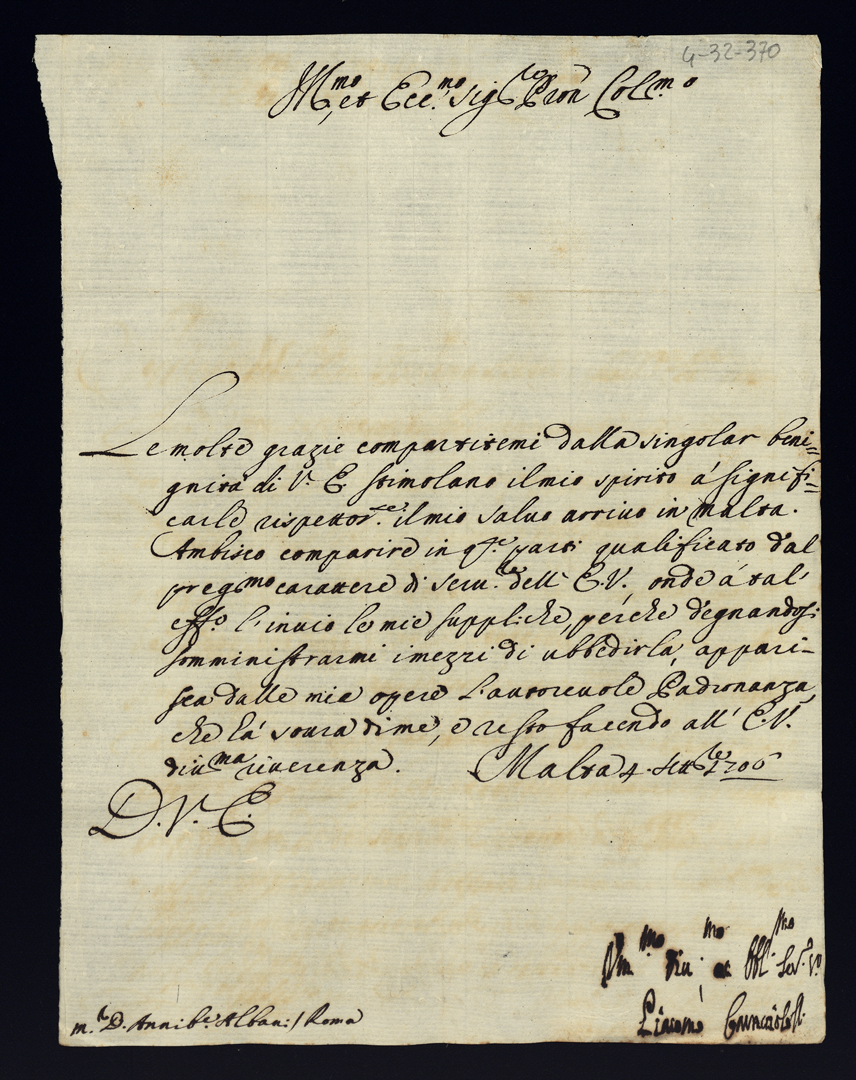 4-32-370
Ill.mo, et Ecc.mo Sig.re Pron Col.mo
Le molte grazie compartitemi dalla singolar beni=
gnità di V. E. stimolano il mio spirito á signifi=
carle rispettos.te il mio saluo arriuo in Malta.
Ambisco comparire in q.te parti qualificato dal
preg.mo carattere di seru.re dell' E.V., onde á tal'
eff.o l'inuio le mie suppliche, perche degnandosi
somministrarmi i mezzi di ubbedirla, appari-
sca dalle mie opere l'autoreuole Padronanza,
che há soura di me, e resto facendo all' E.V.
diu.ma riuerenza. Malta 4. Sett.re 1706
D. V. E.
Um.mo Diu.mo et Obl.mo Ser. V.o
Giacomo
m.r D. Annib.e Albani / Roma